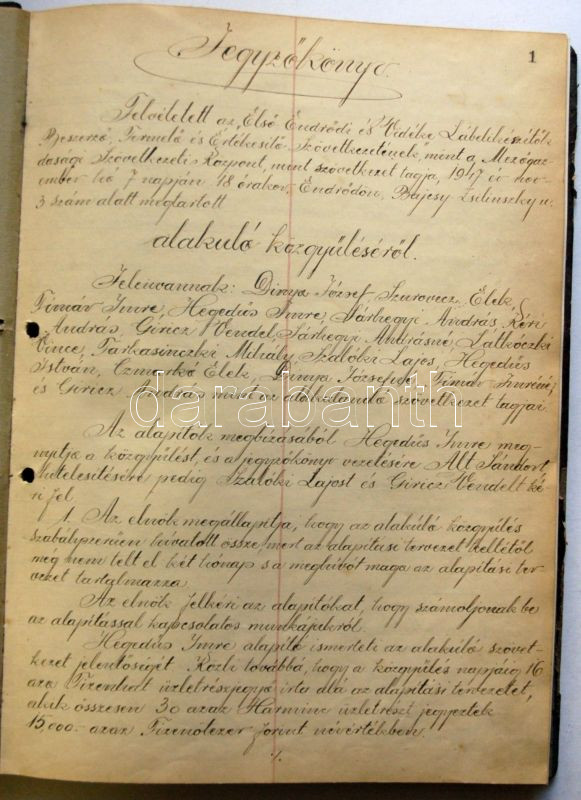 1
Jegyzőkönyv.
Felvétetett az "Első Endrődi és Vidéke Lábbelikészítők
Beszerző, Termelő és Értékesítő Szövetkezetének", mint a Mezőgaz-
dasági Szövetkezeti Központ, mint szövetkezet tagja, 1947 év nov-
ember hó 7 napján 18 órakor, Endrődön, Bajcsy Zsilinszky u.
3 szám alatt megtartott
alakuló közgyűléséről.
Jelenvannak: Dinya József, Szurovecz Elek,
Timár Imre, Hegedűs Imre, Sárhegyi András, Kéri
András, Giricz Vendel, Sárhegyi Andrásné, Latkóczki
Vince, Farkasinczki Mihály, Szalóki Lajos, Hegedűs
István, Czmarkó Elek, Dinya Józsefné, Timár Imréné,
és Giricz András mint az alakítandó szövetkezet tagjai.
Az alapítók megbízásából Hegedűs Imre meg-
nyitja a közgyűlést, és a jegyzőkönyv vezetésére Alt Sándort
hitelesítésére pedig Szalóki Lajost és Giricz Vendelt ké-
ri fel.
1. Az elnök megállapítja, hogy az alakuló közgyűlés
szabályszerűen hivatott össze, mert az alapítási tervezet kelletől
még nem telt el két hónap s a meghívót maga az alapítási ter-
vezet tartalmazza.
Az elnök felkéri az alapítókat, hogy számoljanak be
az alapítással kapcsolatos munkájukról.
Hegedűs Imre alapító ismerteti az alakuló szövet-
kezet jelentőségét. Közli továbbá, hogy a közgyűlés napjáig 16
azaz Tizenhat üzletrészjegyző írta alá az alapítási tervezetet,
akik összesen 30 azaz Harminc üzletrészt jegyeztek
15.000.- azaz Tizenötezer forint névértékben.
./.
darabanth